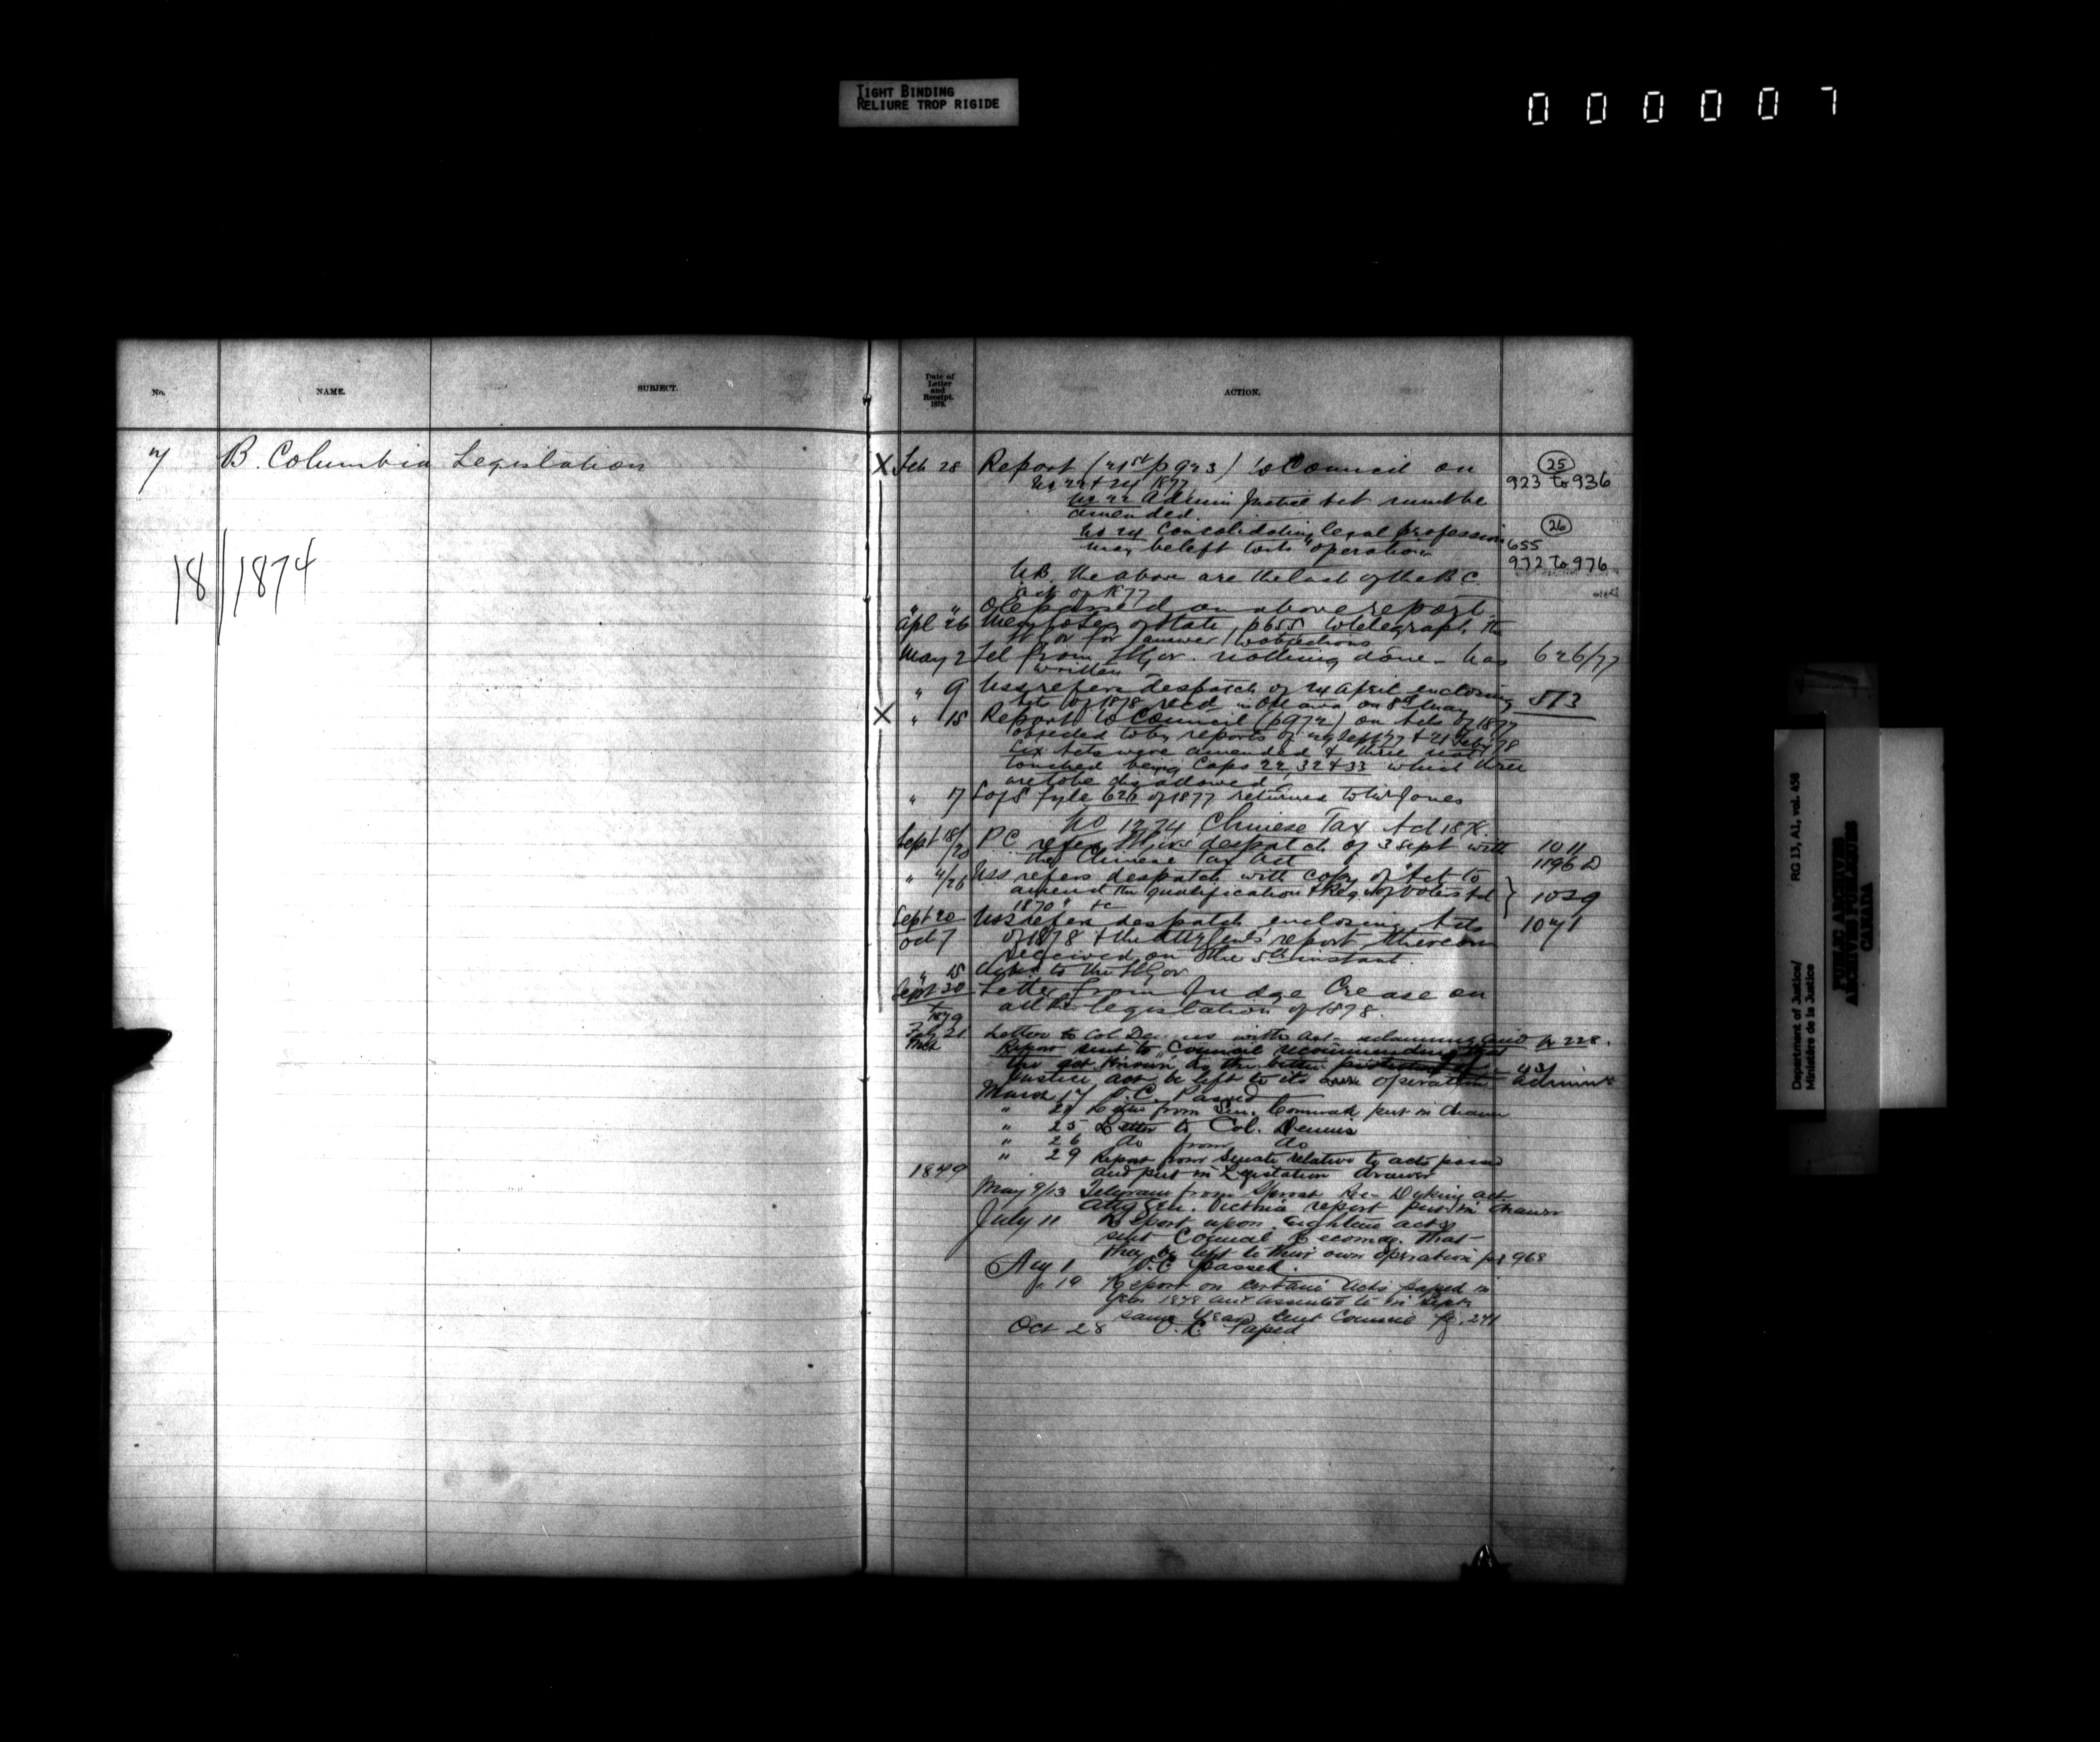 TIGHT BINDING
RELIURE TROP RIGIDE
0 0 0 0 0 7
No.
NAME.
SUBJECT.
Date of
Letter
and
Receipt.
1878.
ACTION.
7 B. Columbia Legislation
18/1874
X Feb 28 Report (21st p 923) to Council on
25
923 to 936
No 22 + 24 1877
No 22 Admin Justice Act must be
amended
26
No 24 Consolidating legal profession
655
may be left to its operation
972 to 976
NB. the above are the last of the B C.
acts of 1877
" " OC passed on above report.
Apl 26 Memo to Sec of State p655 to telegraph the
Lt Gov for answer to objections
May 2 Tel from Lt Gov. nothing done - has 626/77
written
" 9 USS refers despatch of 24 April enclosing 513
Acts of 1878 recd in Ottawa on 8th May
X " 15 Report to Council (p972) on Acts of 1877
objected to by reports of Sept 77 + 21 Feby 78
Six Acts were amended & three not
touched being Caps 22, 32 & 33 which three
are to be disallowed
" 17 S of S fyle 626 of 1877 returned to Mr Jones
No 1274 Chinese Tax Act 1878.
Sept 18/20 PC refers Lt Govs despatch of 3 Sept with 1011
the Chinese Tax Act 1196 D
" 4/26 USS refers despatch with copy of Act to
amend the qualification & Reg. of Votes Act } 1029
1870 " &c
Sept 20 USS refers despatch enclosing Acts 1041
Oct 7 of 1878 & the Atty Genl's report thereon
received on the 5th instant.
" 15 Ackd to the Lt Gov
Sept 30 Letter from Judge Crease on
all the legislation of 1878.
1879
Feb 21 Letter to Col Dennis with Act p 228.
Mch Report sent to Council recommending that
the act known as the better
431
Justice act be left to its own operation adminn
March 17 O.C. Passed
" 21 Letter from Sen. Cornwall put in drawer
" 25 Letter to Col. Dennis
" 26 do from do
" 29 Report from Senate relative to acts passed
1879 and put in Legislation drawer
May 9/13 Telegram from Sproat Re- Dyking act
Atty Gen. Victoria report put in drawer
July 11 Report upon eighteen acts
sent Council recomdg. that
they be left to their own operation pg 968
Aug 1 O.C passed.
" 19 Report on certain acts passed in
year 1878 and assented to in Septr
same year sent Council pg. 241
Oct 28 O.C. Passed
Department of Justice/
Ministère de la Justice
RG 13, A1, vol. 458
PUBLIC ARCHIVES
ARCHIVES PUBLIQUES
CANADA